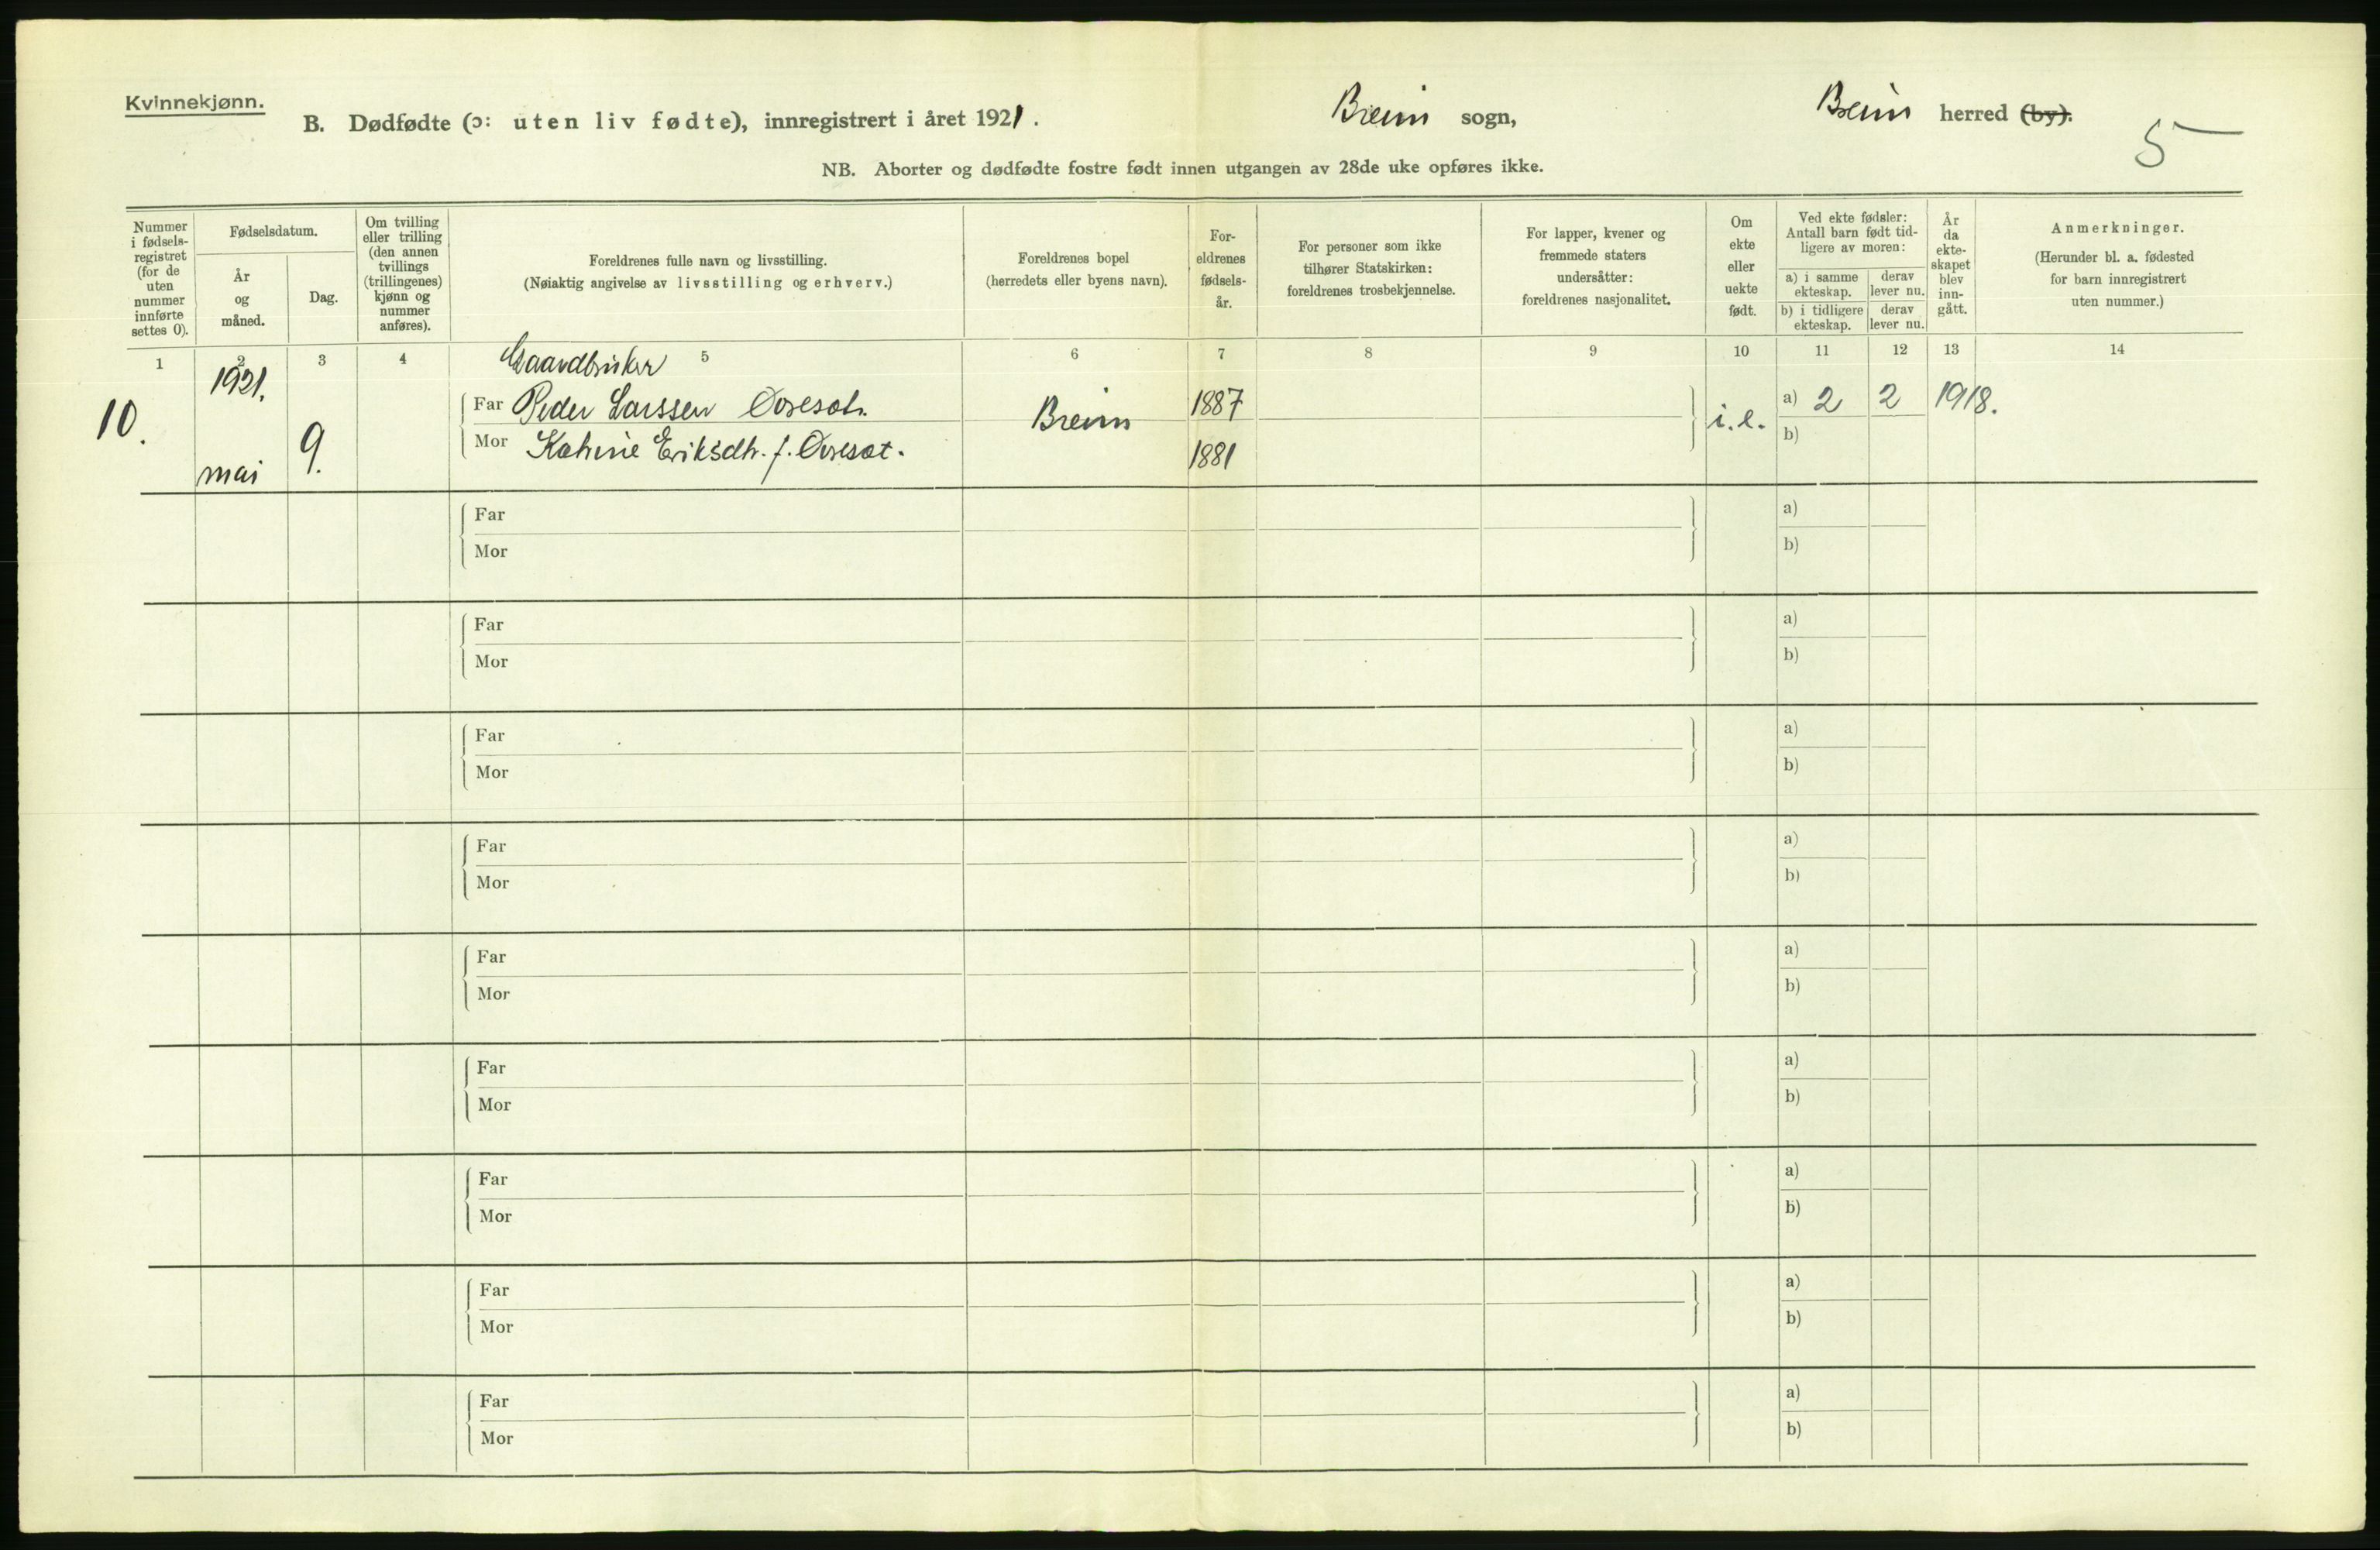 Kvinnekjønn.
B. Dødfødte (ɔ: uten liv fødte), innregistrert i året 1921. Breim sogn, Breim herred (by).
5
NB. Aborter og dødfødte fostre født innen utgangen av 28de uke opføres ikke.
Nummer i fødsels-registret (for de uten nummer innførte settes 0).
Fødselsdatum.
År og måned.
Dag.
Om tvilling eller trilling (den annen tvillings (trillingenes) kjønn og nummer anføres).
Foreldrenes fulle navn og livsstilling.
(Nøiaktig angivelse av livsstilling og erhverv.)
Foreldrenes bopel
(herredets eller byens navn).
For-eldrenes fødsels-år.
For personer som ikke tilhører Statskirken: foreldrenes trosbekjennelse.
For lapper, kvener og fremmede staters undersåtter: foreldrenes nasjonalitet.
Om ekte eller uekte født.
Ved ekte fødsler: Antall barn født tid-ligere av moren:
a) i samme ekteskap.
derav lever nu.
b) i tidligere ekteskap.
derav lever nu.
År da ekte-skapet blev inn-gått.
Anmerkninger.
(Herunder bl. a. fødested for barn innregistrert uten nummer.)
1 2 3 4 5 6 7 8 9 10 11 12 13 14
Gaardbruker
10. 1921. mai 9.
Far Peder Larssen Breim 1887 i.e. a) 2 2 1918.
Mor Katrine Eriksdtr. f. 1881 b)
Far a)
Mor b)
Far a)
Mor b)
Far a)
Mor b)
Far a)
Mor b)
Far a)
Mor b)
Far a)
Mor b)
Far a)
Mor b)
Far a)
Mor b)
Far a)
Mor b)